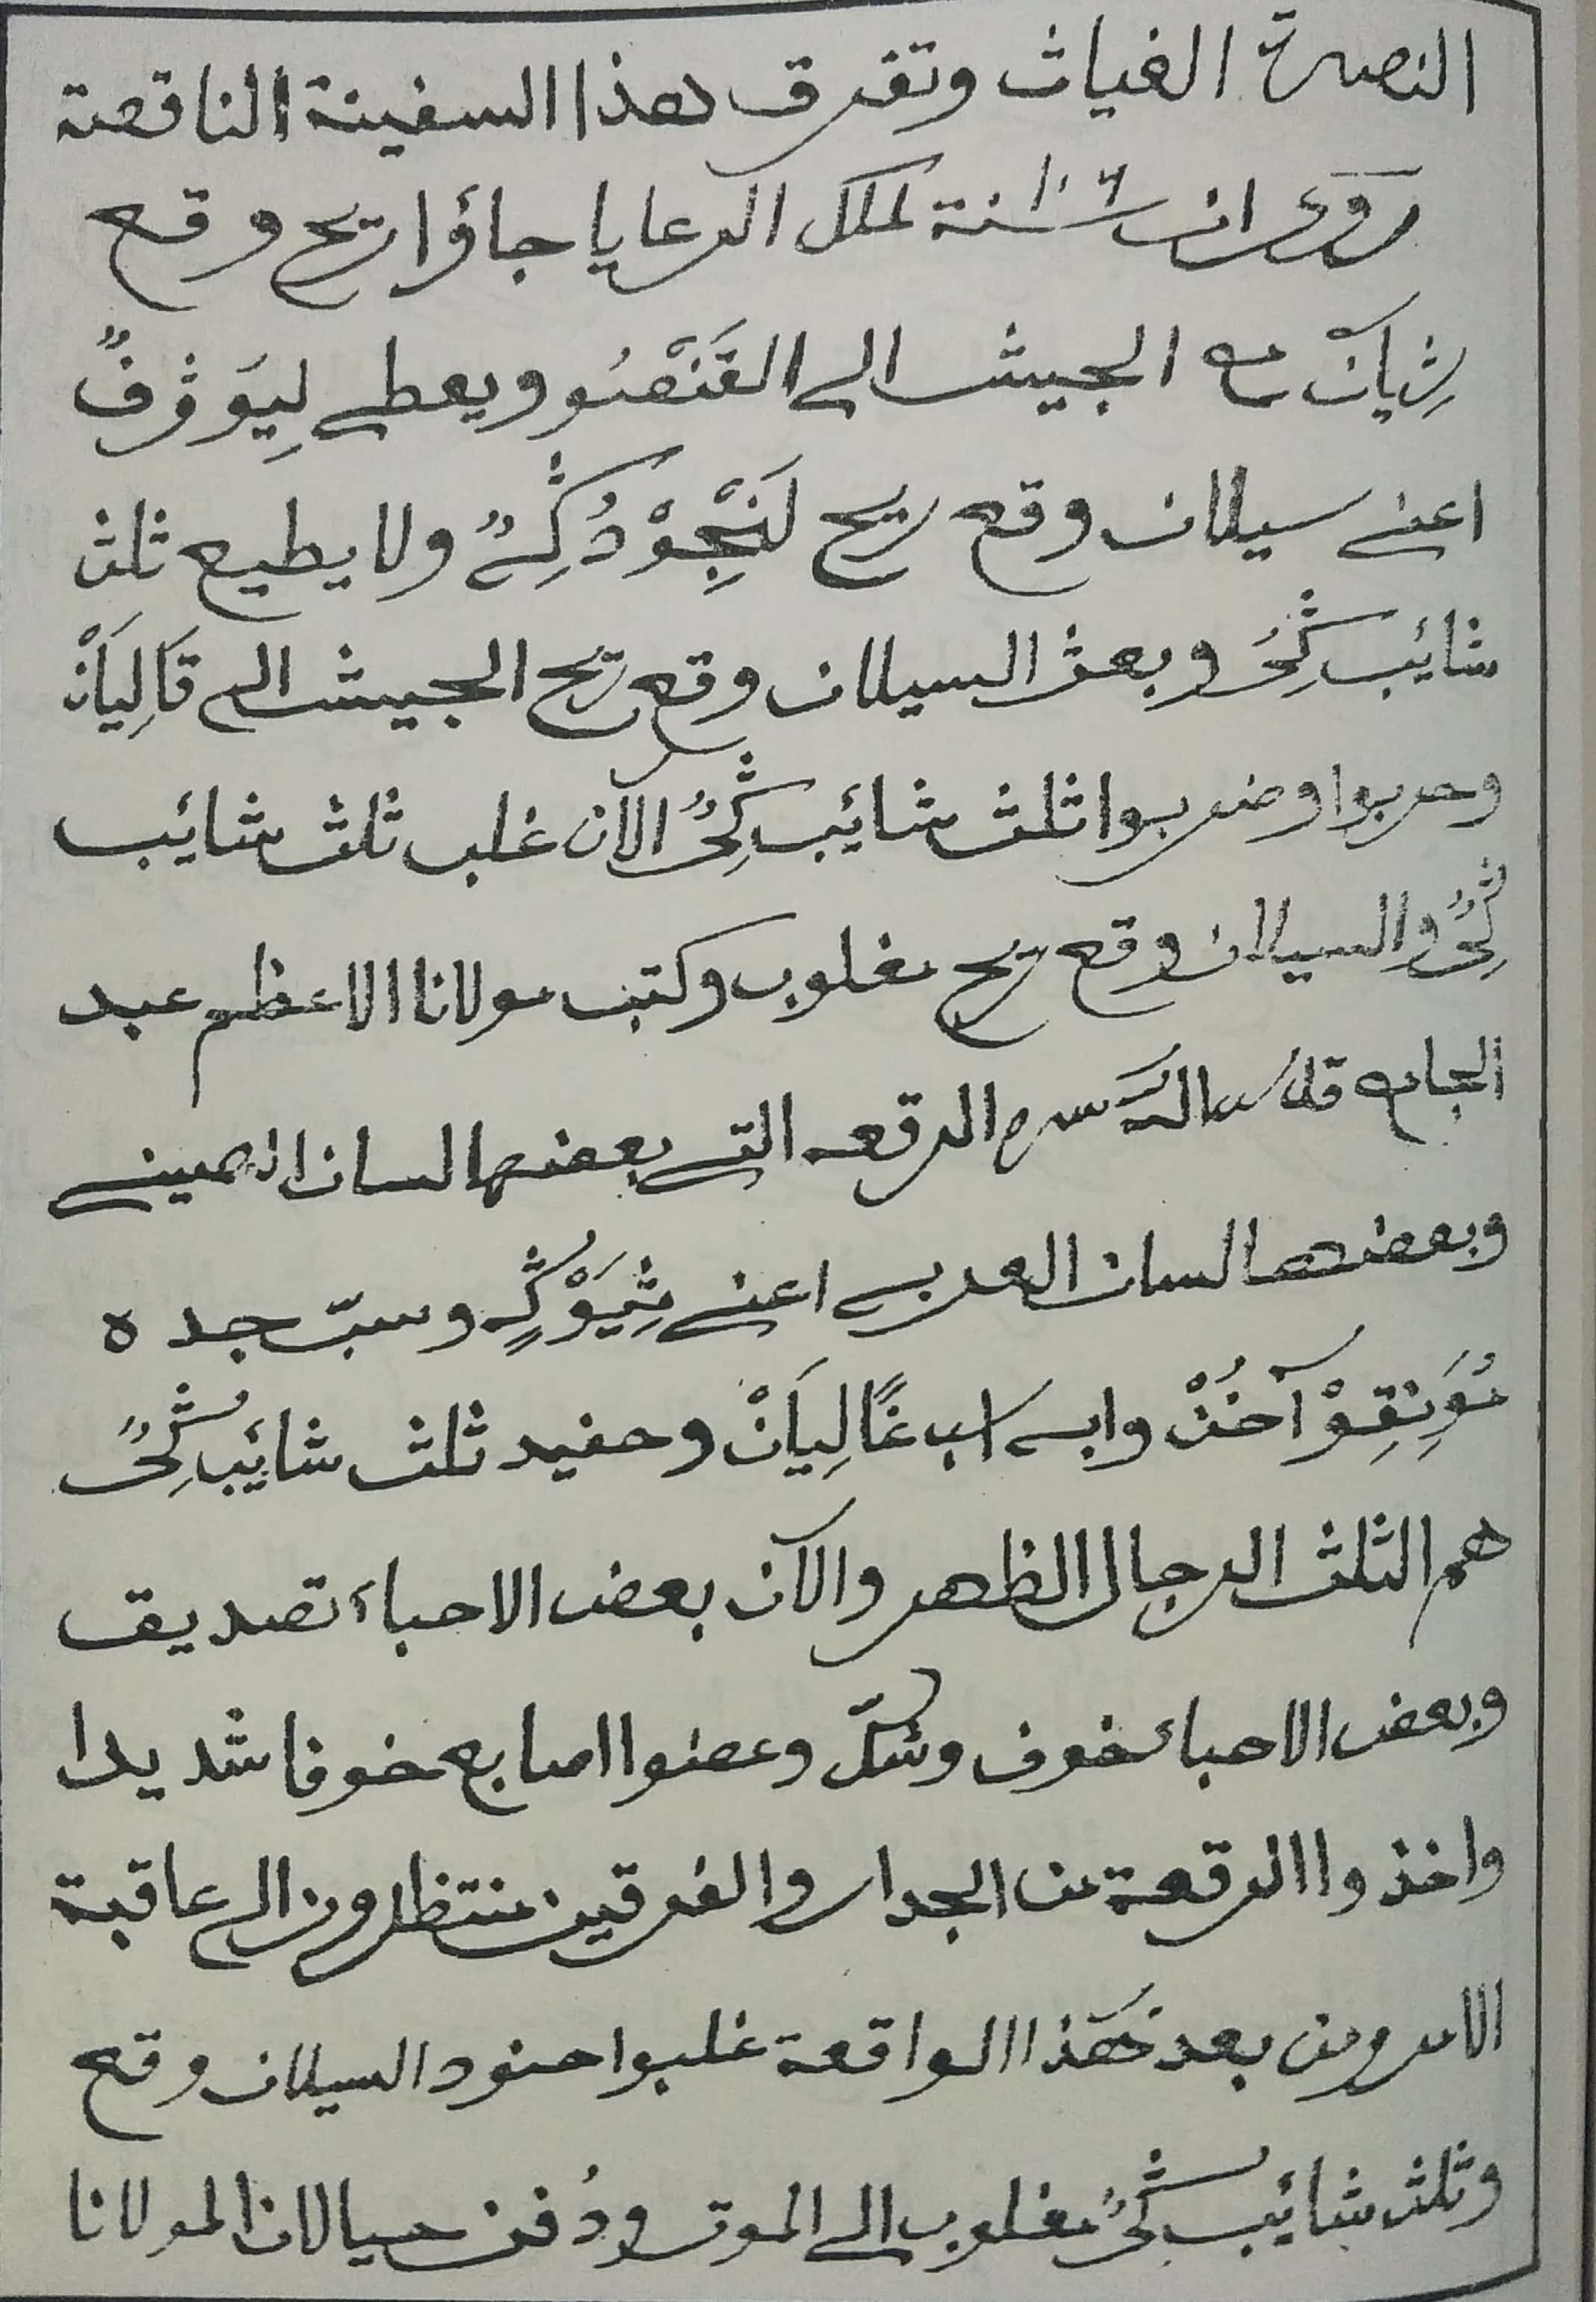 النصرة الغياث وتفرق هذا السفينة الناقصة
لملك الرعايا جاؤا ريح وقع
الجيش الى القَنْصُو ويعطى لِيَوْ
اعنى سيلان وقع ريح ولا يطيع ثلث
شائب كِىُ وبعث السيلان وقع ريح الجيش الى قَالِيَانْ
وحربوا وضربوا ثلث شائب كِىُ الآن غلب ثلث شائب
كِىُ والسيلان وقع ريح مغلوب وكتب مولانا الاعظم عبد
الرقعه التى بعضها لسان الصينى
وبعضها لسان العربى اعنى وسبّ جده
غَالِيَانْ وحفيد ثلث شائب كِىُ
هم الثلث الرجال الظهر والآن بعض الاحباء تصديق
وبعض الاحباء خوف وشكّ وعضوا اصابع خوفا شديدا
واخذوا الرقعة من الجدار والفرقين منتظرون الى عاقبة
الامر ومن بعد هَذا الواقعة غلبوا جنود السيلان وقع
وثلث شائب كِىُ مغلوب الى الموت ودُفن المولانا